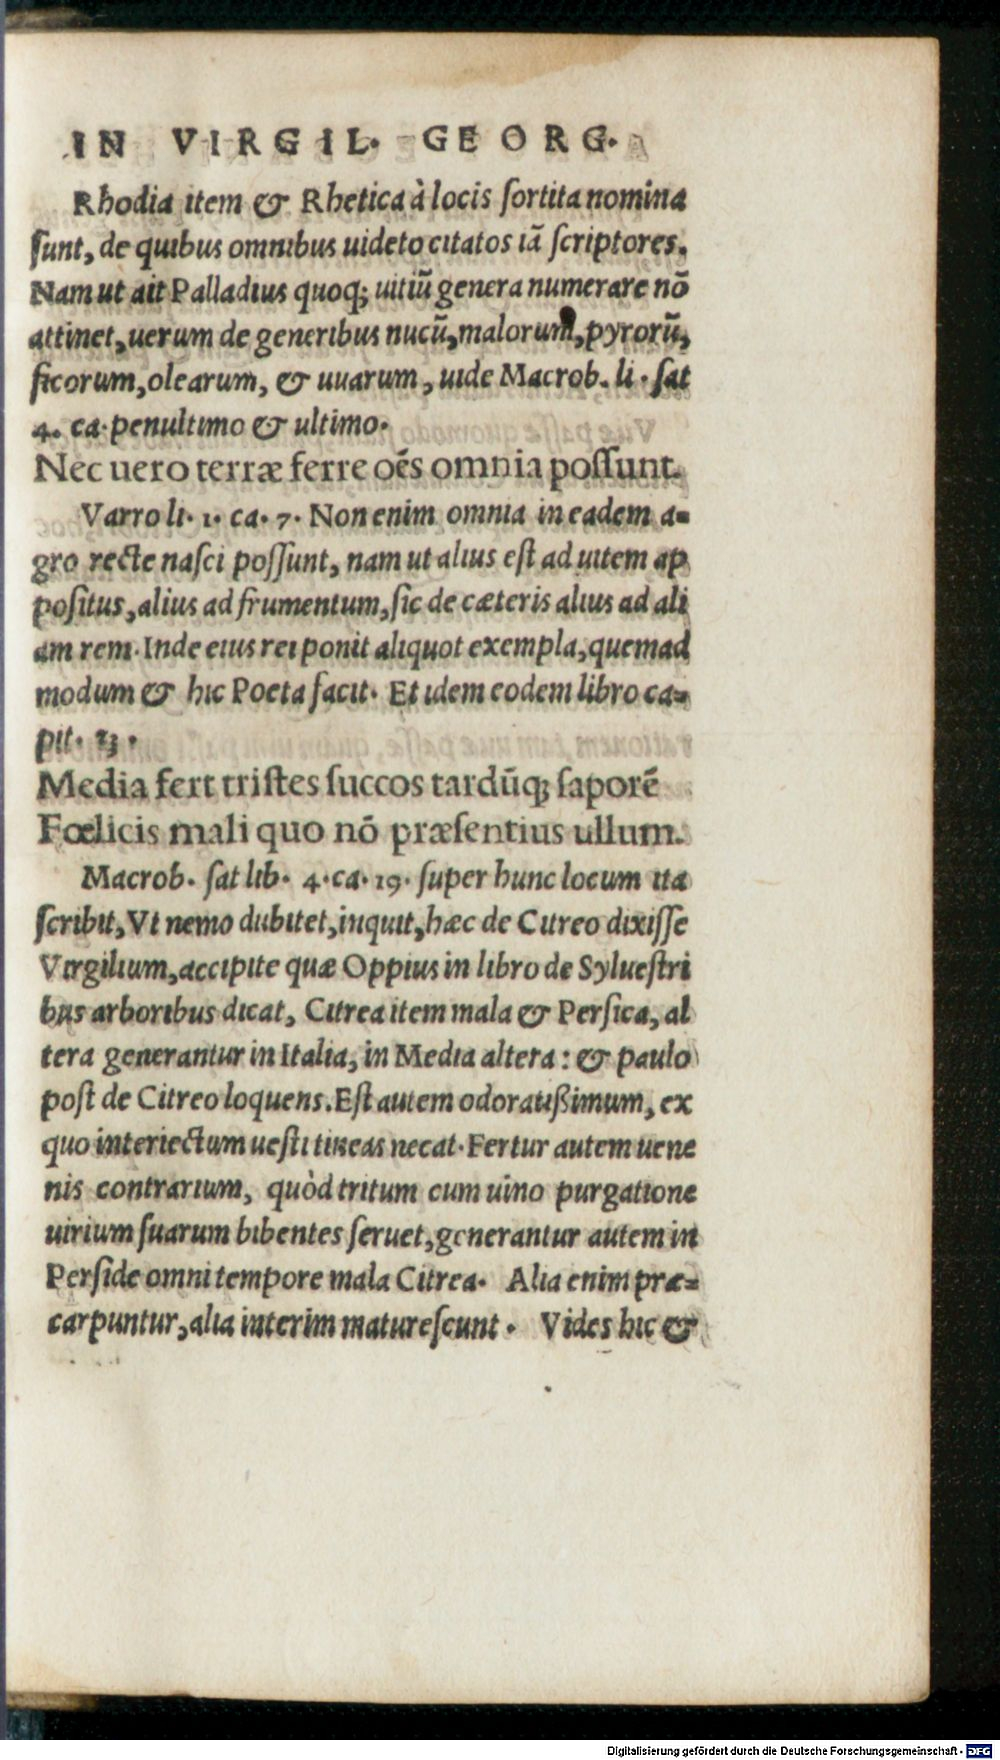 IN VIRGIL. GEORG.
Rhodia item & Rhetica à locis ſortita nomina
ſunt, de quibus omnibus uideto citatos iã ſcriptores.
Nam ut ait Palladius quoq; uitiũ genera numerare nõ
attinet, uerum de generibus nucũ, malorum, pyrorũ,
ficorum, olearum, & uuarum, uide Macrob. li. ſat
4. ca. penultimo & ultimo.
Nec uero terræ ferre oẽs omnia poſſunt.
Varro li. 1. ca. 7. Non enim omnia in eadem a-
gro recte naſci poſſunt, nam ut alius eſt ad uitem ap
poſitus, alius ad frumentum, ſic de cæteris alius ad ali
am rem. Inde eius rei ponit aliquot exempla, quemad
modum & hic Poeta facit. Et idem eodem libro ca-
pit. 23.
Media fert triſtes ſuccos tardũq; ſaporẽ
Fœlicis mali quo nõ præſentius ullum.
Macrob. ſat lib. 4. ca. 19. ſuper hunc locum ita
ſcribit, Vt nemo dubitet, inquit, hæc de Citreo dixiſſe
Virgilium, accipite quæ Oppius in libro de Sylueſtri
bus arboribus dicat, Citrea item mala & Perſica, al
tera generantur in Italia, in Media altera: & paulo
poſt de Citreo loquens. Eſt autem odoratißimum, ex
quo interiectum ueſti tineas necat. Fertur autem uene
nis contrarium, quòd tritum cum uino purgatione
uirium ſuarum bibentes ſeruet, generantur autem in
Perſide omni tempore mala Citrea. Alia enim præ-
carpuntur, alia interim matureſcunt. Vides hic &
Digitalisierung gefördert durch die Deutsche Forschungsgemeinschaft - DFG